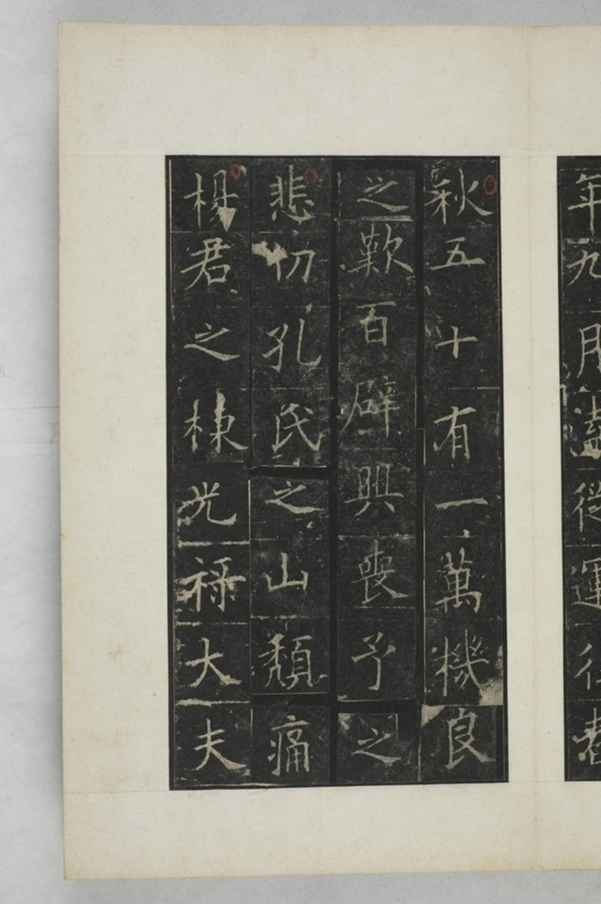 年九月溘從運往春
秋五十有一萬機良
之歎百辟興喪予之
悲切孔氏之山頹痛
君之棟光祿大夫